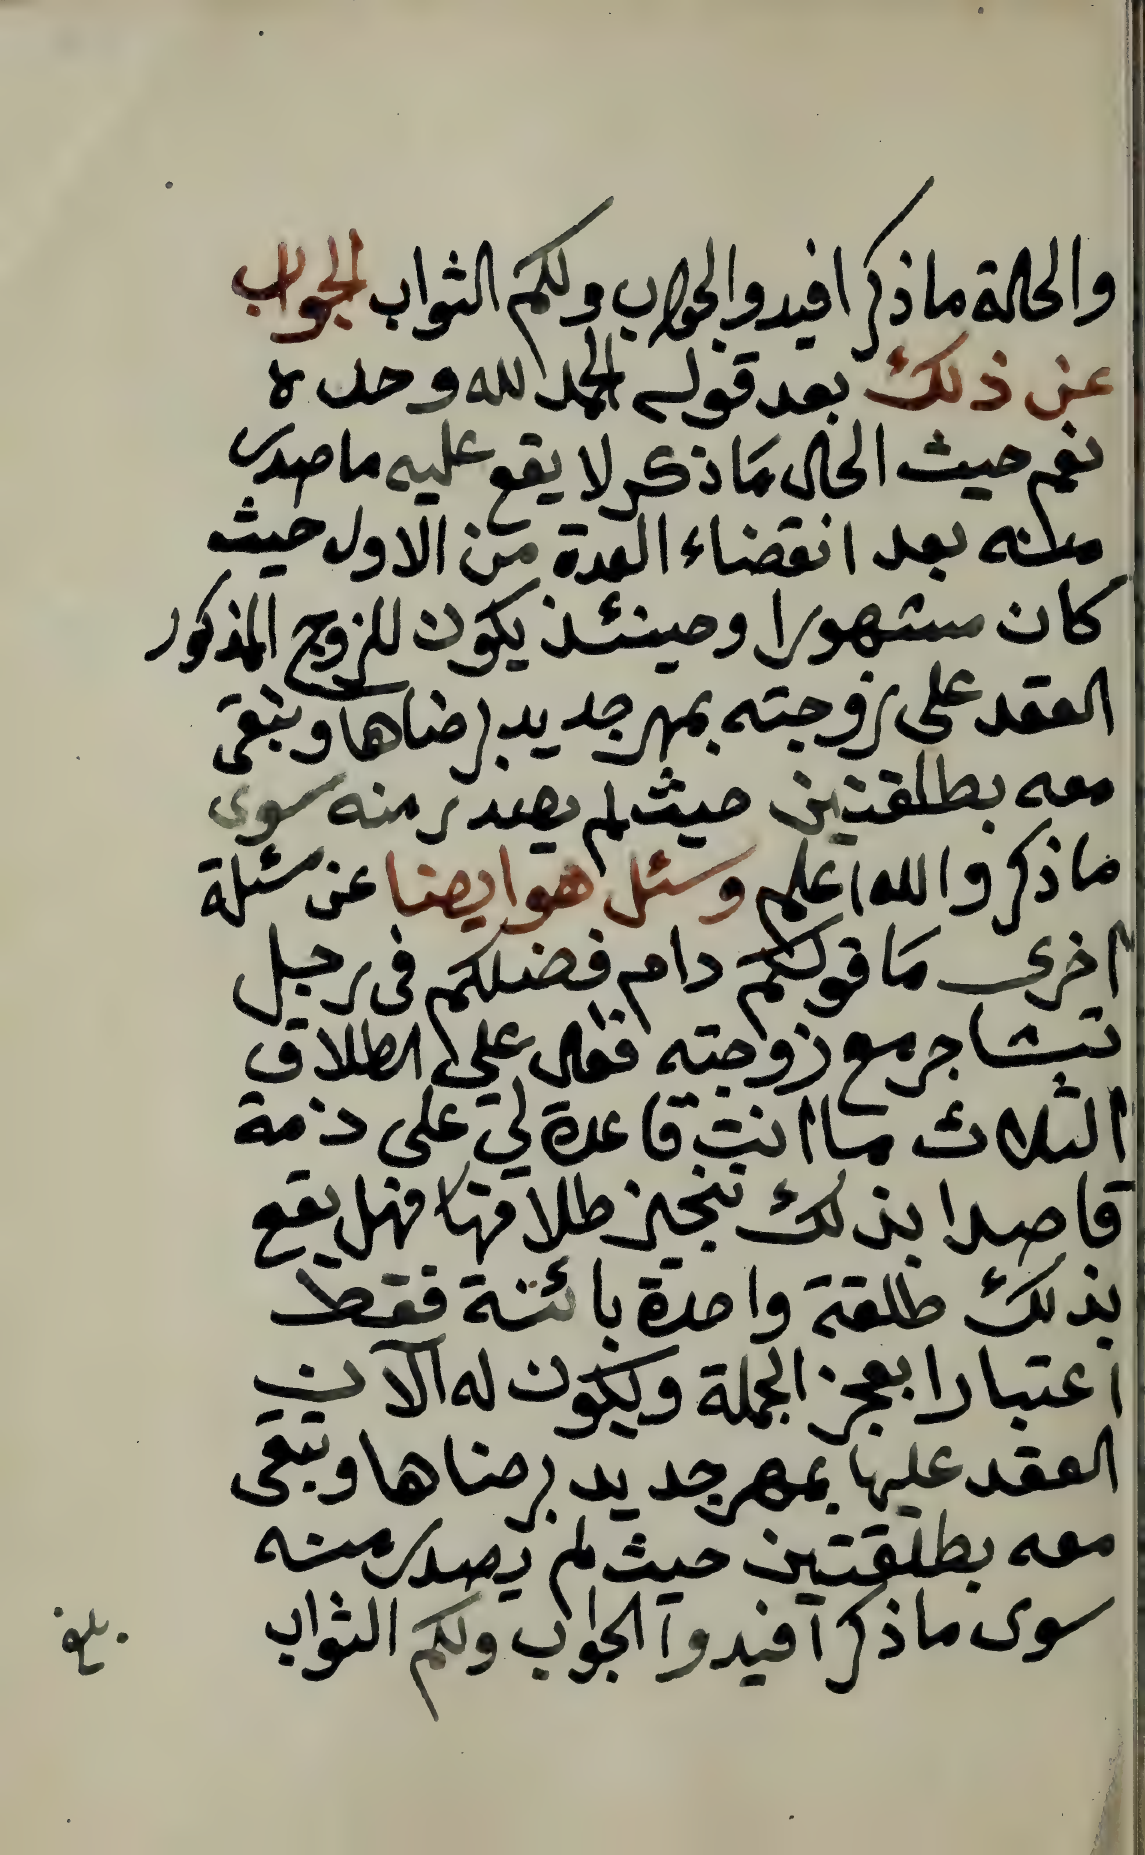 والحالة ماذكر افيدوا الجواب ولكم الثواب الجواب
عن ذلك بعد قوله الحمد لله وحده
نعم حيث الحال ماذكر لا يقع عليه ماصدر
منه بعد انقضاء العدة من الاول حيث
كان مشهورا وحينئذ يكون للزوج المذكور
العقد على زوجته بمهر جديد برضاها وتبقى
معه بطلقتين حيث لم يصدر منه سوى
ماذكر والله اعلم وسئل هو ايضا عن مسئلة
اخرى ما قولكم دام فضلكم في رجل
تشاجر مع زوجته فقال علي الطلاق
الثلاث ما انت قاعدة لي على ذمة
قاصدا بذلك تنجيز طلاقها فهل يقع
بذلك طلقة واحدة بائنة فقط
اعتبارا بعجز الجملة ويكون له الآن
العقد عليها بمهر جديد برضاها وتبقى
معه بطلقتين حيث لم يصدر منه
سوى ماذكر افيدوا الجواب ولكم الثواب
بلغ